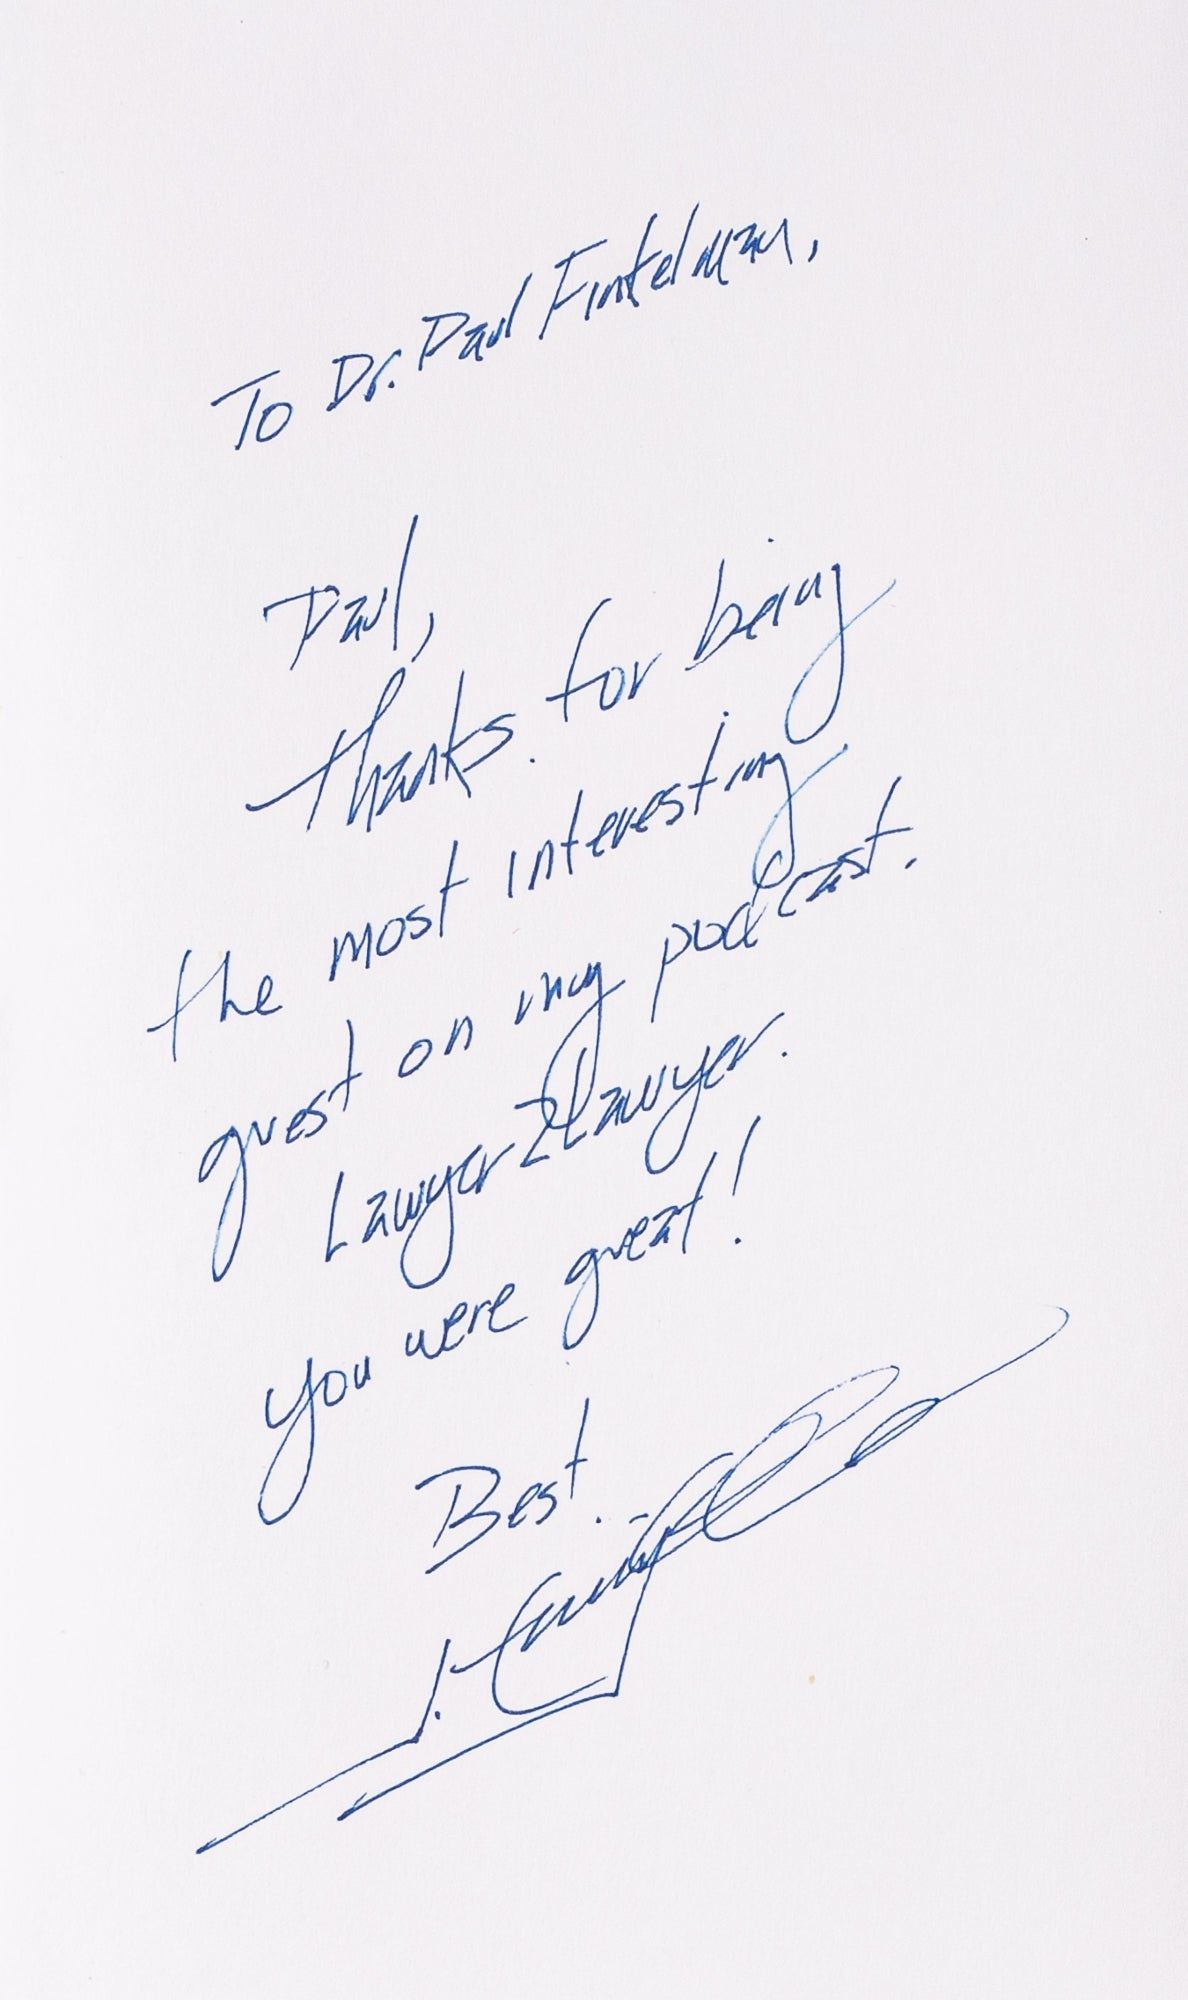 To Dr. Paul Fintelman,
Paul,
thanks for being
the most interesting
guest on my podcast.
Lawyer2Lawyer.
You were great!
Best..